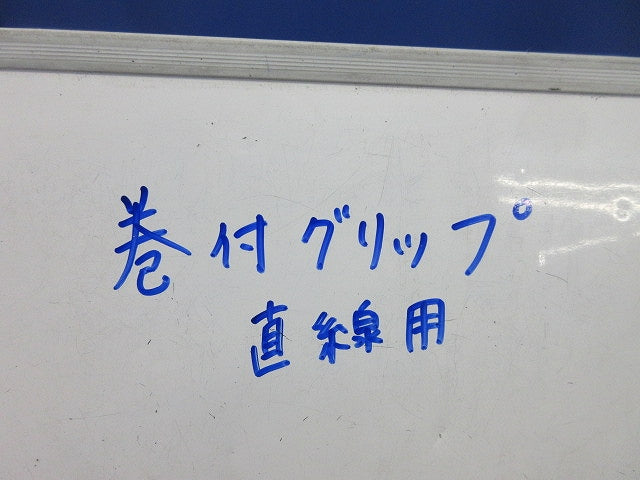 巻付グリップ
直線用